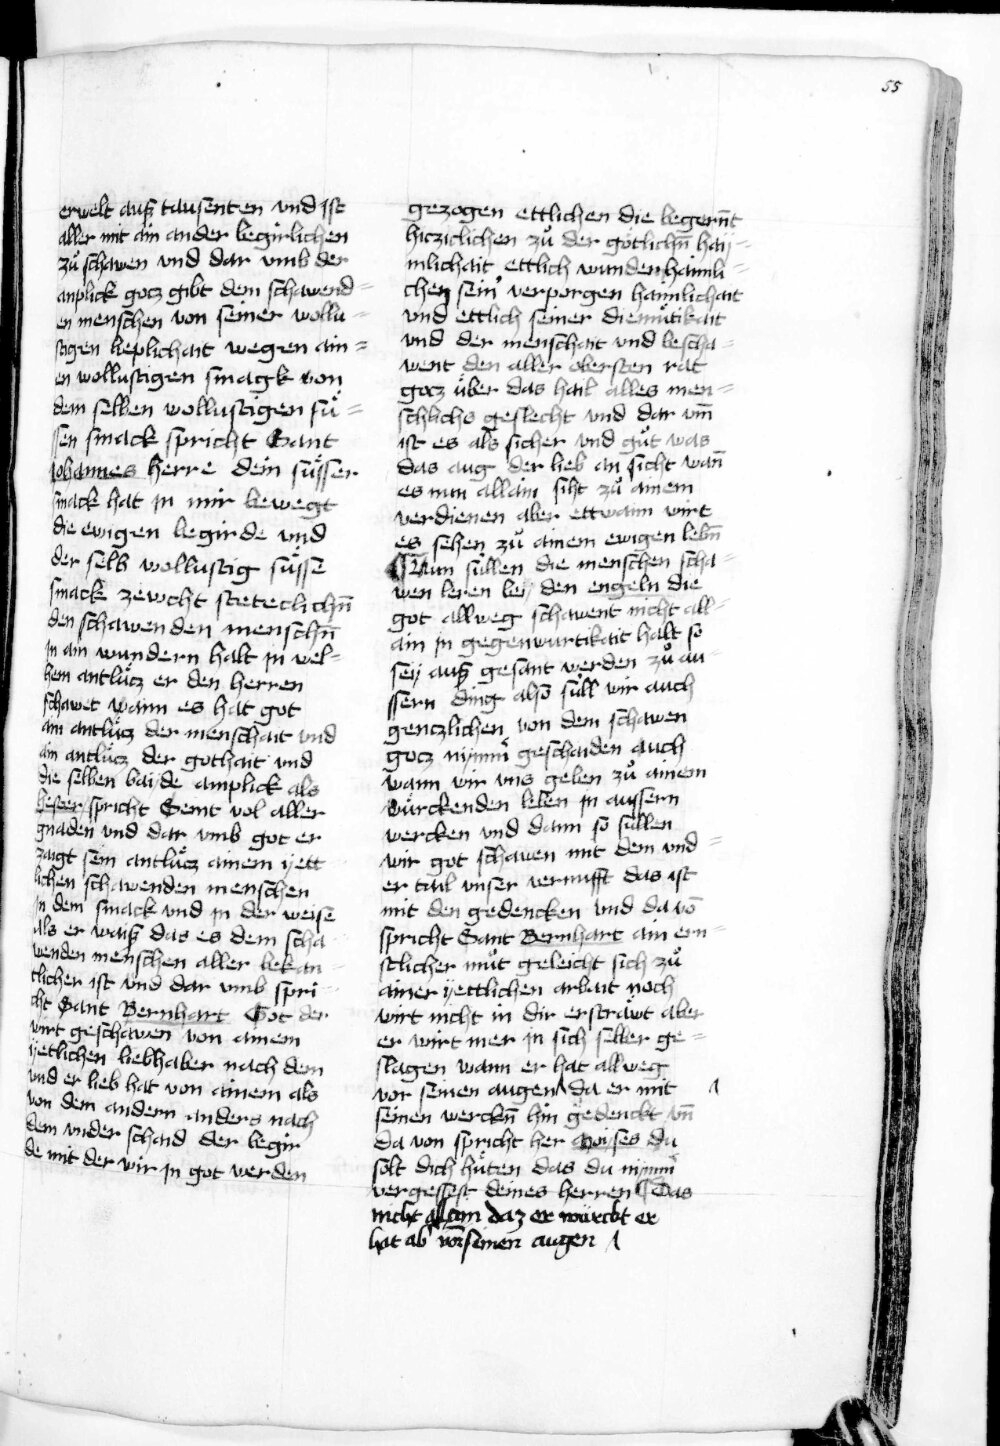 55
erwelt auß tausenten vnd ist
aller mit ain ander begirlichen
zů schawen vnd dar vmb der
anplick gocz gibt dem schawend=
en menschen von seiner wollu=
stigen lieplichait wegen ain=
en wollustigen smagk von
dem selben wollustigen sü=
ssen smack spricht Sant
Johannes herre dein süsser
smack hat in mir bewegt
die ewigen begirde vnd
der selb wollustig süsse
smack zewcht steteclichn̄
den schawenden menschn̄
in ain wundern halt in wel=
hem antlücz er den herren
schawet wann es hat got
ain antlücz der menschait vnd
ain antlücz der gothait vnd
die selben baide anplick als
hester spricht Seint vol aller
gnaden vnd dar vmb got er
zaigt sein antlücz ainem yett
lichen schawenden menschen
in dem smack vnd in der weise
als er waiß das es dem scha
wenden menschen aller bekan=
tlicher ist vnd dar vmb spri=
cht Sant Bernhart Got der
wirt geschawen von ainem
yetlichen liebhaber nach dem
vnd er lieb hat von ainem als
von dem andern anders nach
dem vnder schaid der begir
de mit der wir in got werden
gezogen ettlichen die begernt
hicziclichen zů der götlichn̄ hay=
mlichait ettlich wunden haimli=
chen sein' verporgen haimlichait
vnd ettlich seiner diemütikait
vnd der menschait vnd bescha=
went den aller obersten rat
gocz über das hail alles men=
schlichs geslecht vnd dar vm̄
ist es als sicher vnd gůt was
das aug der lieb an sicht wan̄
es nun allain siht zů ainem
verdienen aber ettwann wirt
es sehen zů ainem ewigen lebn̄
Nun süllen die menschen scha=
wen leren bey den engeln die
got allweg schawent nicht all=
ain in gegenwurtikait halt so
sey auß gesant werden zů au=
ssern ding also süll wir auch
genczlichen von dem schawen
gocz nymm̄ geschaiden auch
wann wir vns geben zů ainem
würckenden leben in aussern
wercken vnd dann so süllen
wir got schawen mit dem vnd=
er tail vnser vernufft das ist
mit den gedencken vnd da vō
spricht Sant Bernhart ain ern=
stlicher můt geleicht sich zů
ainer yettlichen arbait noch
wirt nicht in dir ersträwt aber
er wirt mer in sich selber ge=
slagen wann er hat allweg
vor seinen augen da er mit
seinen werckn̄ hin gedenckt vn̄
da von spricht her Moyses du
solt dich hüten das du nymm̄
vergessest deines herren Das
nicht allain daz er würckt er
hat ab vor seinen augen